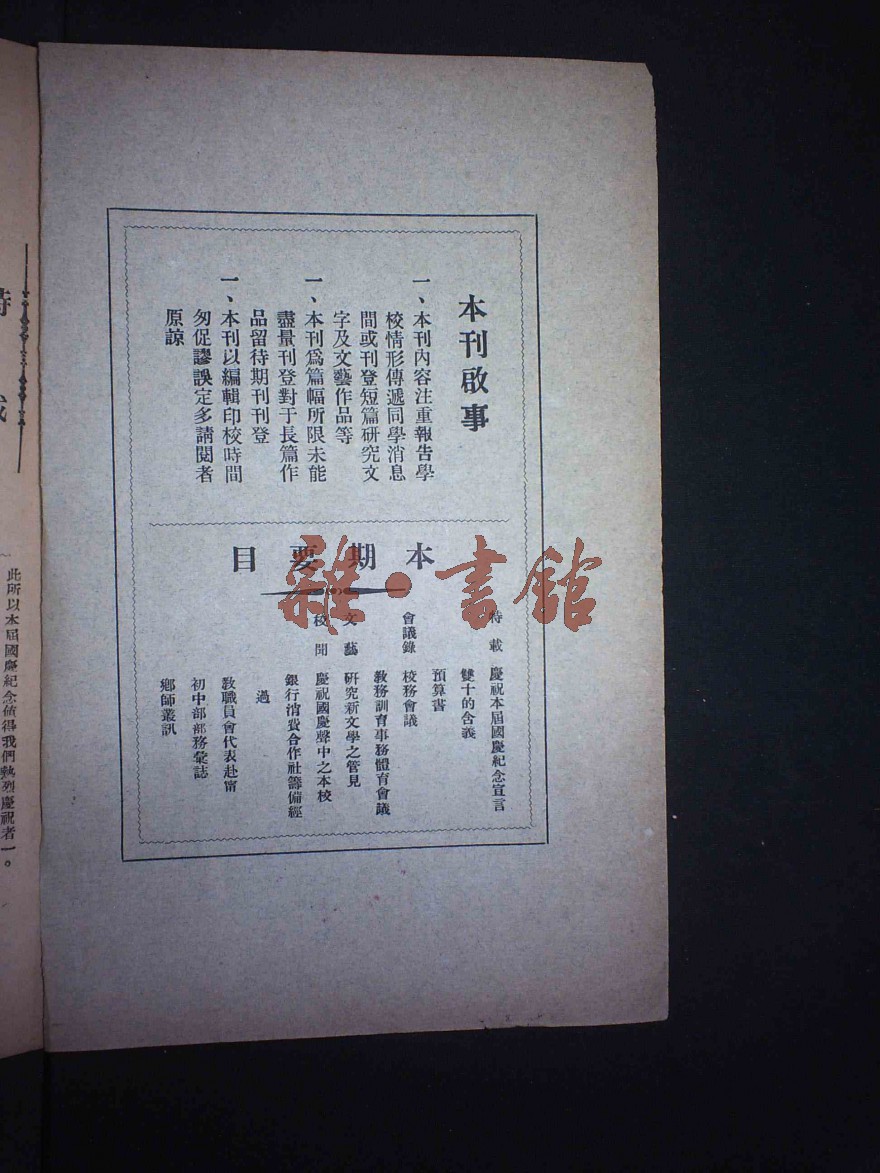 本刊啟事
一、本刊內容注重報告學
校情形傳遞同學消息
間或刊登短篇研究文
字及文藝作品等
一、本刊爲篇幅所限未能
盡量刊登對于長篇作
品留待期刊刊登
一、本刊以編輯印校時間
匆促謬誤定多請閱者
原諒
本期要目
特載 慶祝本屆國慶紀念宣言
雙十的含義
預算書
會議錄 校務會議
教務訓育事務體育會議
文藝 研究新文學之管見
校聞 慶祝國慶聲中之本校
銀行消費合作社籌備經
過
教職員會代表赴甯
初中部部務彙誌
鄉師叢訊
雜·書館
此所以本屆國慶紀念值得我們熱烈慶祝者一。